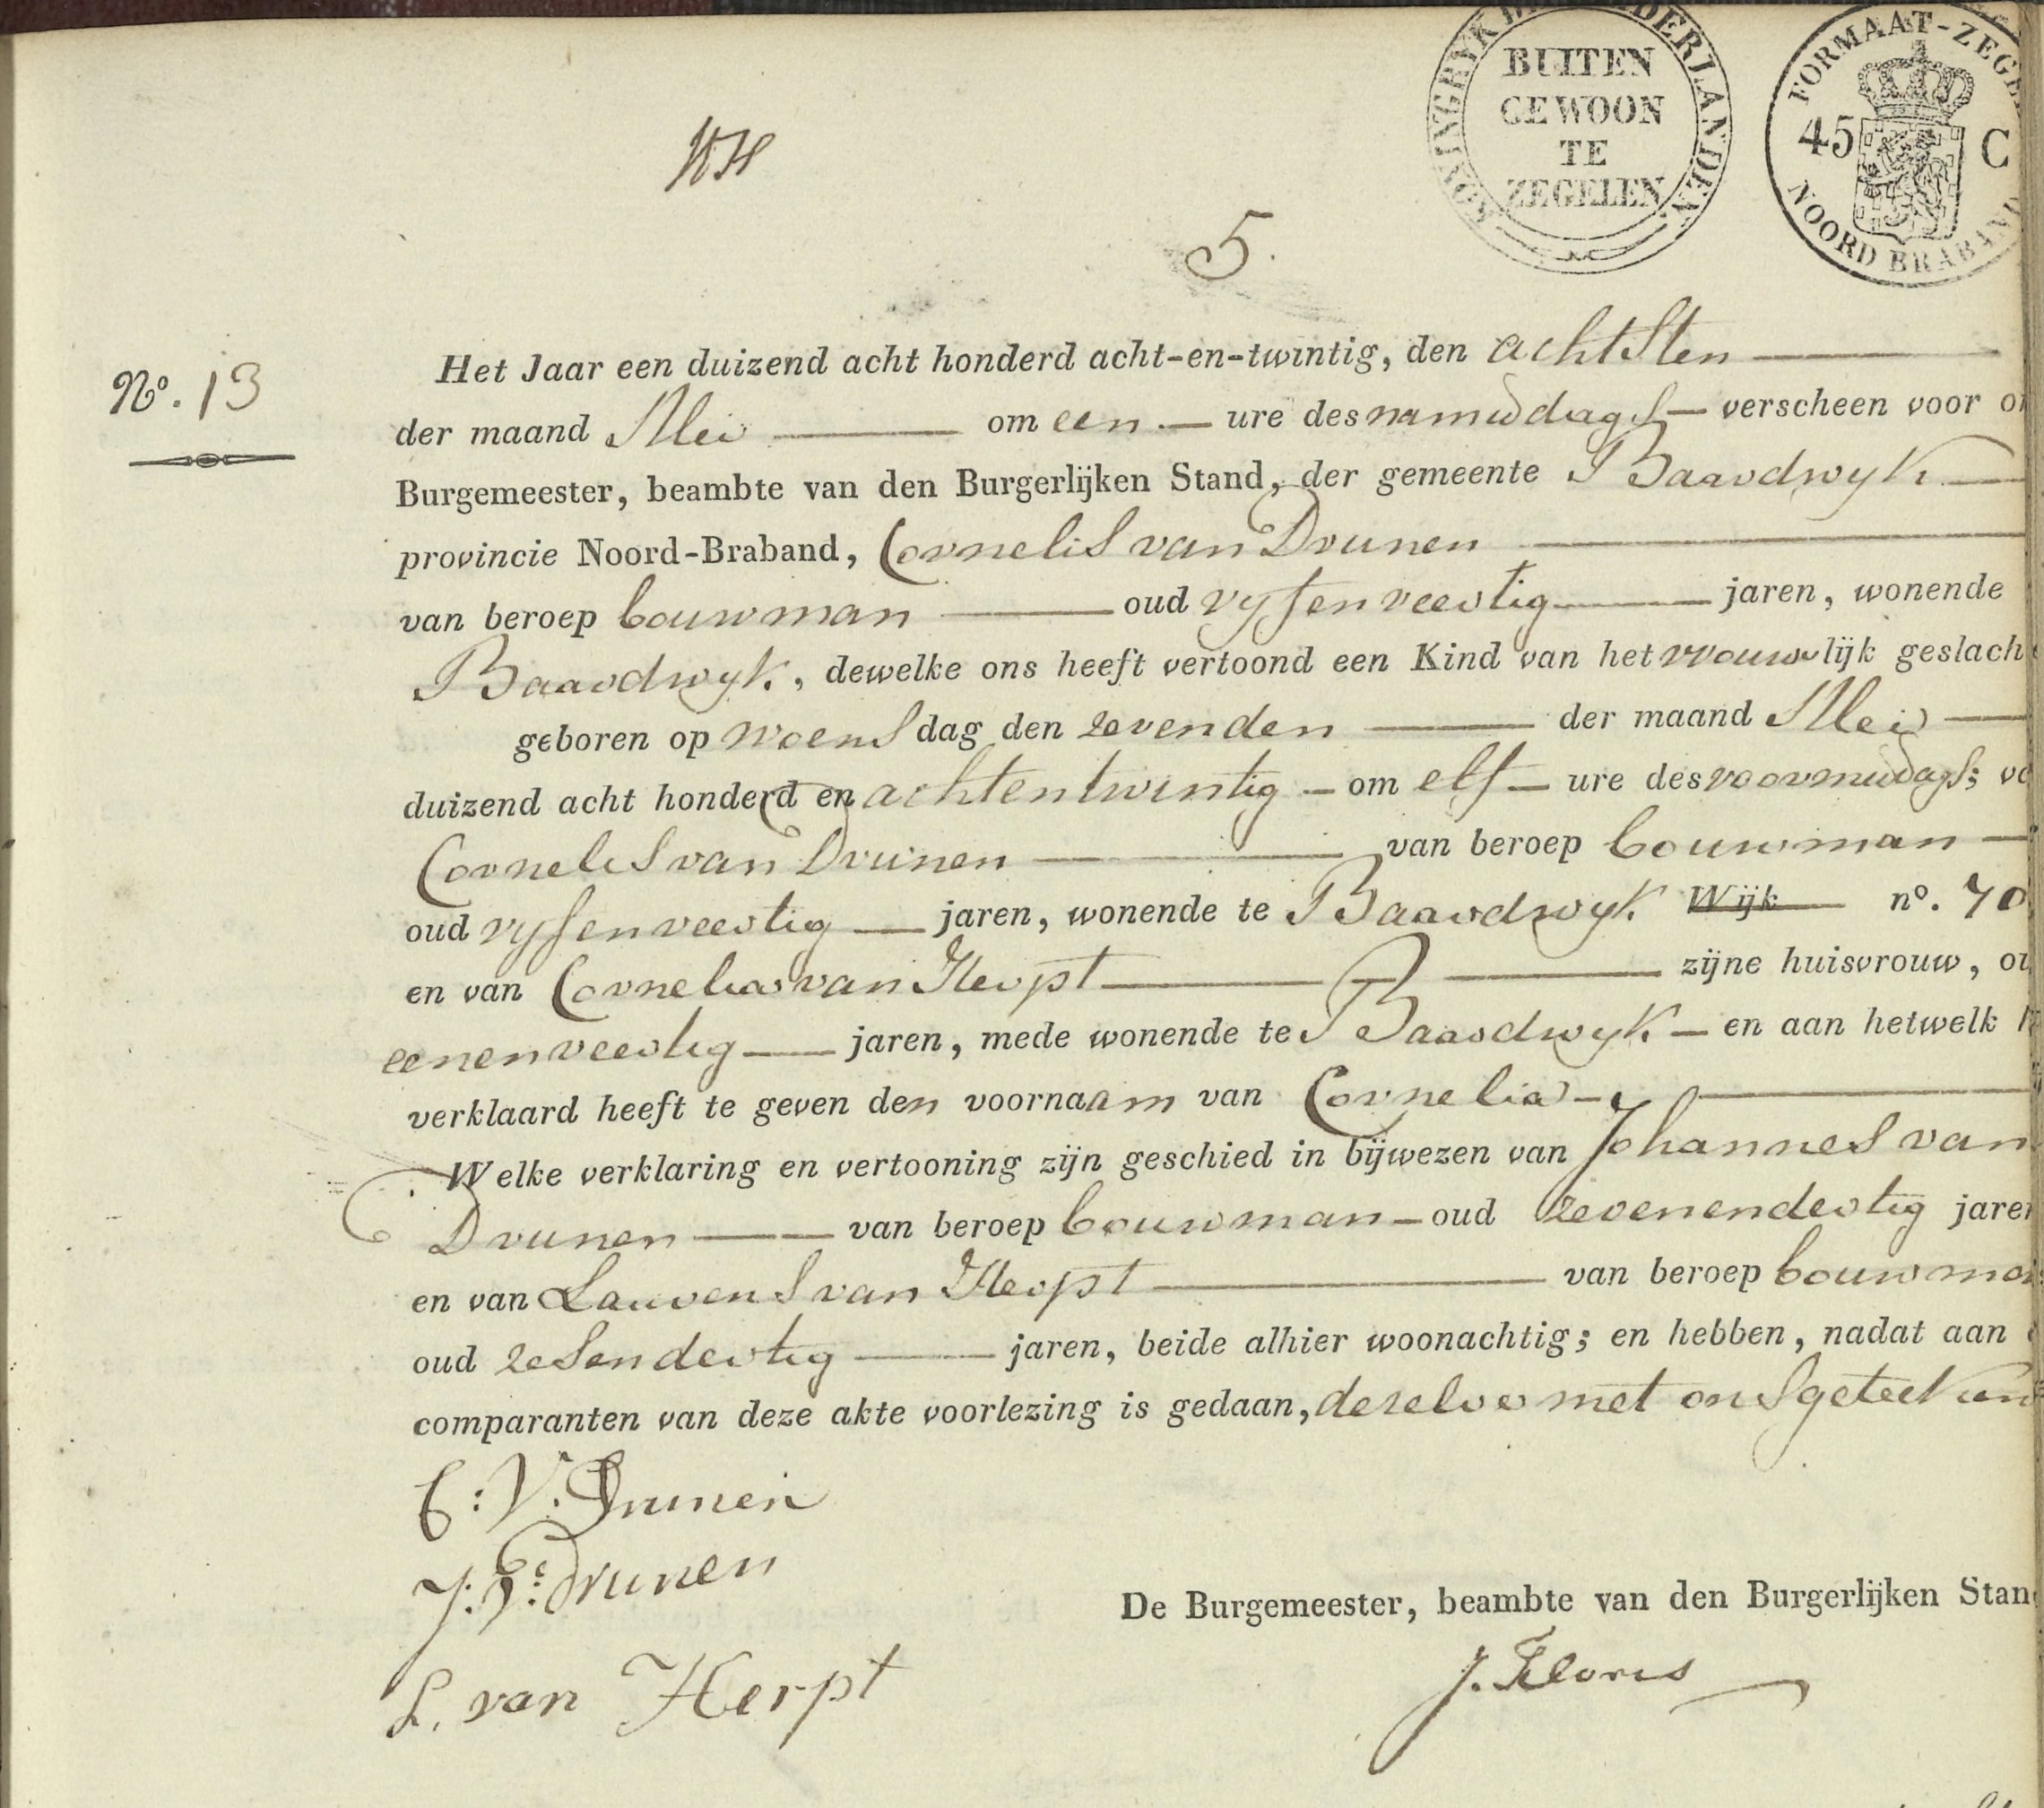 KONINGRYK DER NEDERLANDEN
BUITEN
GEWOON
TE
ZEGELEN
FORMAAT-ZEGEL
45 C
NOORD BRABAND
5.
No. 13
Het Jaar een duizend acht honderd acht-en-twintig, den achtsten
der maand Mei om een ure des namiddags verscheen voor
Burgemeester, beambte van den Burgerlijken Stand, der gemeente Baardwyk
provincie Noord-Braband, Cornelis van Drunen
van beroep bouwman oud vyfenveertig jaren, wonende
Baardwyk, dewelke ons heeft vertoond een Kind van het vrouwlijk geslach
geboren op woensdag den zevenden der maand Mei
duizend acht honderd en achtentwintig om elf ure des voormiddags;
Cornelis van Drunen van beroep bouwman
oud vyfenveertig jaren, wonende te Baardwyk Wijk no. 70
en van Cornelia van Herpt zijne huisvrouw,
eenenveertig jaren, mede wonende te Baardwyk en aan hetwelk
verklaard heeft te geven den voornaam van Cornelia
Welke verklaring en vertooning zijn geschied in bijwezen van Johannes van
Drunen van beroep bouwman oud zevenendertig jaren
en van Laurens van Herpt van beroep bouwman
oud zesendertig jaren, beide alhier woonachtig; en hebben, nadat aan
comparanten van deze akte voorlezing is gedaan, dezelve met ons geteekend
C: V. Drunen
J. V: Drunen
De Burgemeester, beambte van den Burgerlijken Stand
L. van Herpt
J. Floris